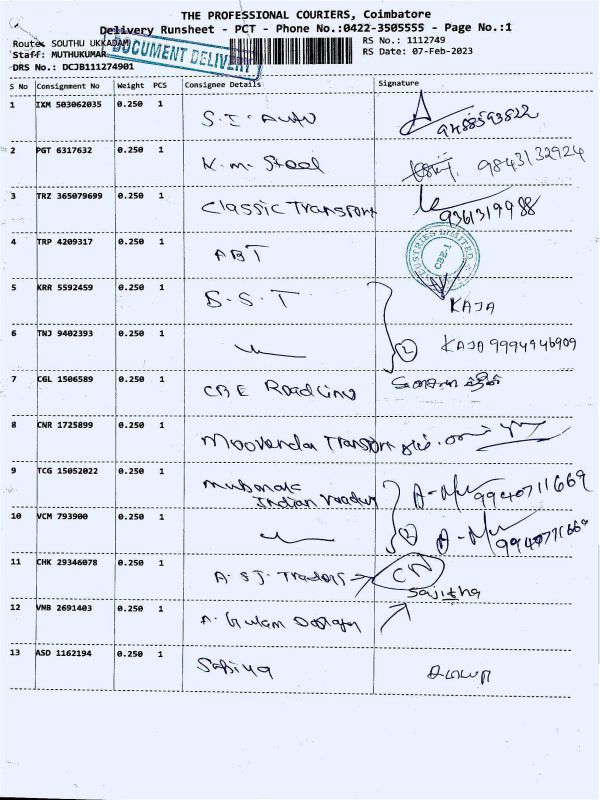 THE PROFESSIONAL COURIERS, Coimbatore
Delivery Runsheet - PCT - Phone No.:0422-3505555 - Page No.:1
Route: SOUTHU UKKADAM RS No.: 1112749
Staff: MUTHUKUMAR RS Date: 07-Feb-2023
DOCUMENT DELIVERY
DRS No.: DCJB111274901
S No Consignment No Weight PCS Consignee Details Signature
1 IXM 503062035 0.250 1 S.I. Auto
2 PGT 6317632 0.250 1 K.m. Steel 9843132924
3 TRZ 365079699 0.250 1 Classic Transport
4 TRP 4209317 0.250 1 ABT
CBE-1
5 KRR 5592459 0.250 1 B.S.T KAJA
6 TNJ 9402393 0.250 1 2 KAJA 9994946909
7 CGL 1506589 0.250 1 CBE Roadlins
8 CNR 1725899 0.250 1 Moovendar Transport
9 TCG 15052022 0.250 1 Mubarak 9940711669
Indian
10 VCM 793900 0.250 1 2 9940711669
11 CHK 29346078 0.250 1 A.S.J. Traders CN
Sajitha
12 VNB 2691403 0.250 1 A. Gulam
13 ASD 1162194 0.250 1 Sabiya